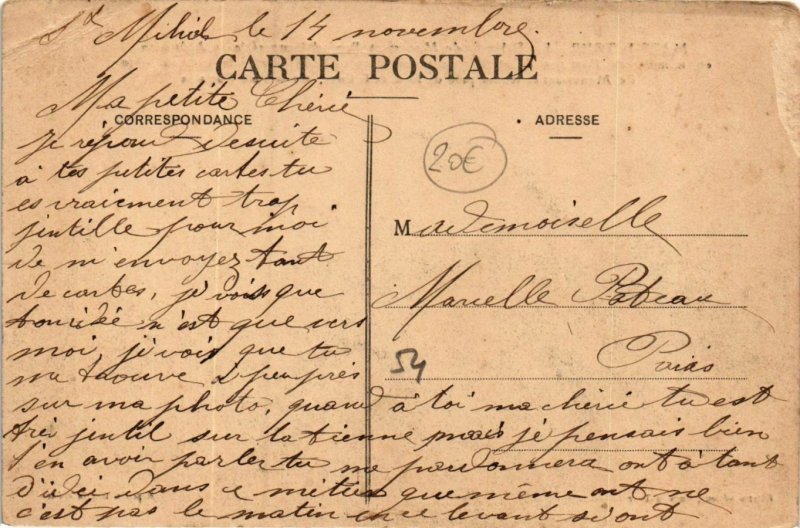 St Mihiel le 14 novembre.
CARTE POSTALE
Ma petite Chérie
CORRESPONDANCE
ADRESSE
je répond desuite
à tes petites cartes tu
es vraiement trop
jentille pour moi
de m'envoyez tant
de cartes, je vois que
n'est que vers
moi, je vois que tu
me trouve à peu près
sur ma photo, quand
à toi ma chérie tu est
trèi jentil sur la tienne mais je pensais bien
j'en avoir parler tu me pardonnera ont à tant
d'idei dans ce métier que même ont ne
c'est pas le matin en ce levant si ont
20€
Mademoiselle
Marcelle
54